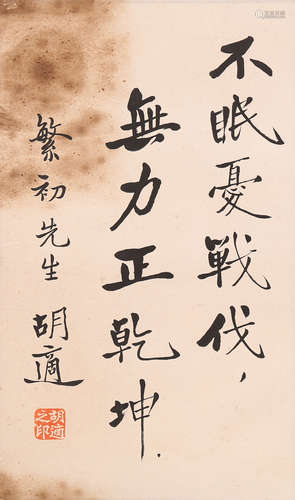 不眠憂戰伐,
無力正乾坤.
繁初先生
胡適
胡適之印